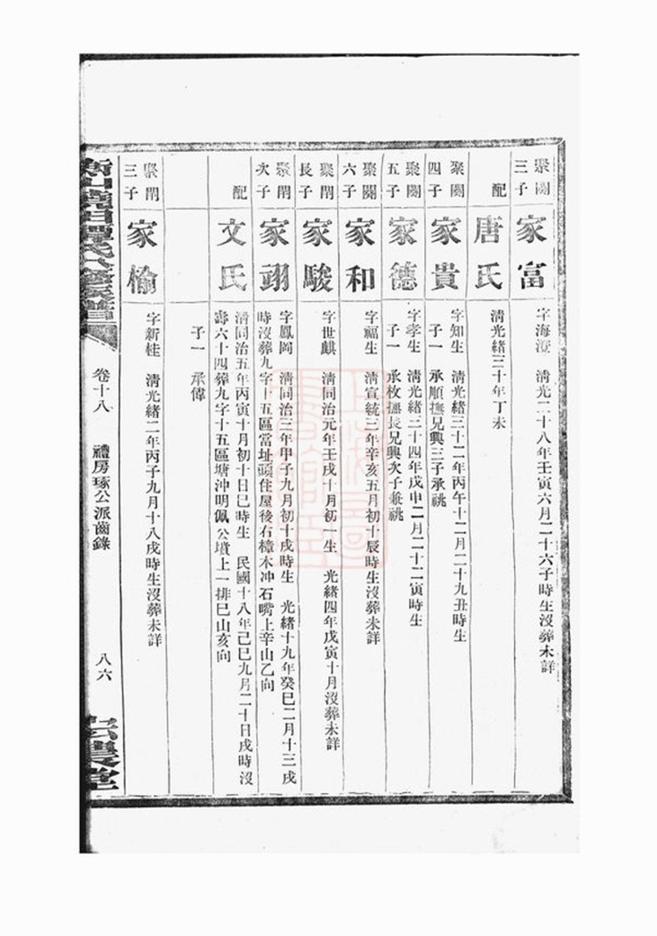 聚關三子
家富
字海澄 清光緒二十八年壬寅六月二十六子時生沒葬未詳
配
唐氏
清光緒三十年丁未
聚關四子
家貴
字知生 清光緒三十二年丙午十二月二十九丑時生
子一 承順撫兄興三子承祧
聚關五子
家德
字孝生 清光緒三十四年戊申二月二十二寅時生
子一 承枚撫長兄興次子兼祧
聚關六子
家和
字福生 清宣統三年辛亥五月初十辰時生沒葬未詳
聚閘長子
家駿
字世麒 清同治元年壬戌十月初一生 光緒四年戊寅十月沒葬未詳
聚閘次子
家翊
字鳳岡 清同治三年甲子九月初十戌時生 光緒十九年癸巳二月十三戌
時沒葬九字十五區當址頭住屋後右樟木冲石嘴上辛山乙向
配
文氏
清同治五年丙寅十月初十日巳時生 民國十八年己巳九月二十日戌時沒
壽六十四葬九字十五區塘沖明佩公墳上一排巳山亥向
子一 承偉
聚閘三子
家愉
字新桂 清光緒二年丙子九月十八戌時生沒葬未詳
卷十八 禮房琢公派齒錄 八六